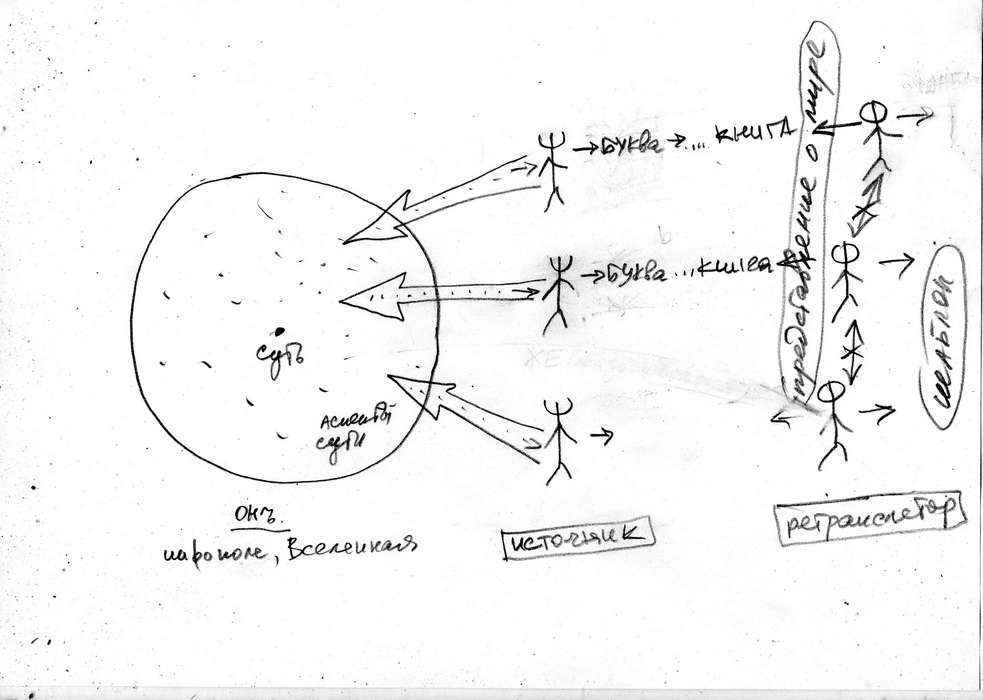 → БУКВА → ... КНИГА
→ БУКВА ... КНИГА
представление о мире
шаблон
суть
Аспекты
сути
ОНЪ.
инфополе, Вселенная
источник
ретранслятор
ЖЕ